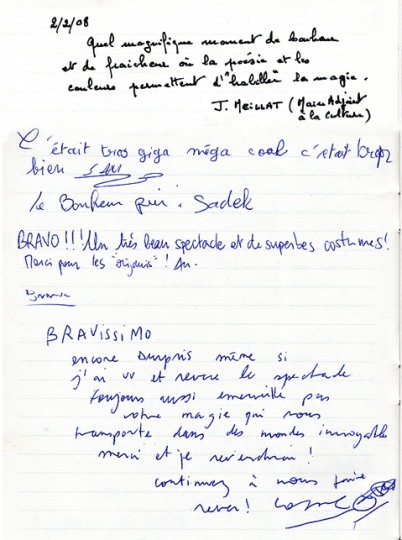 2/2/08
Quel magnifique moment de bonheur
et de fraicheur où la poésie et les
couleurs permettent d'"habiller" la magie.
J. MEILLAT (Maire Adjoint
à la Culture)
C'était tros giga méga cool c'était trop
bien
le Bonheur pur. Sadek
BRAVO!!! Un très beau spectacle et de superbes costumes!
Merci pour les "origamis"!
Bravo
BRAVISSIMO
encore surpris même si
j'ai vu et revu le spectacle
toujours aussi emerveillé par
votre magie qui nous
transporte dans des mondes incroyables
merci et je reviendrai!
continuez à nous faire
rever!